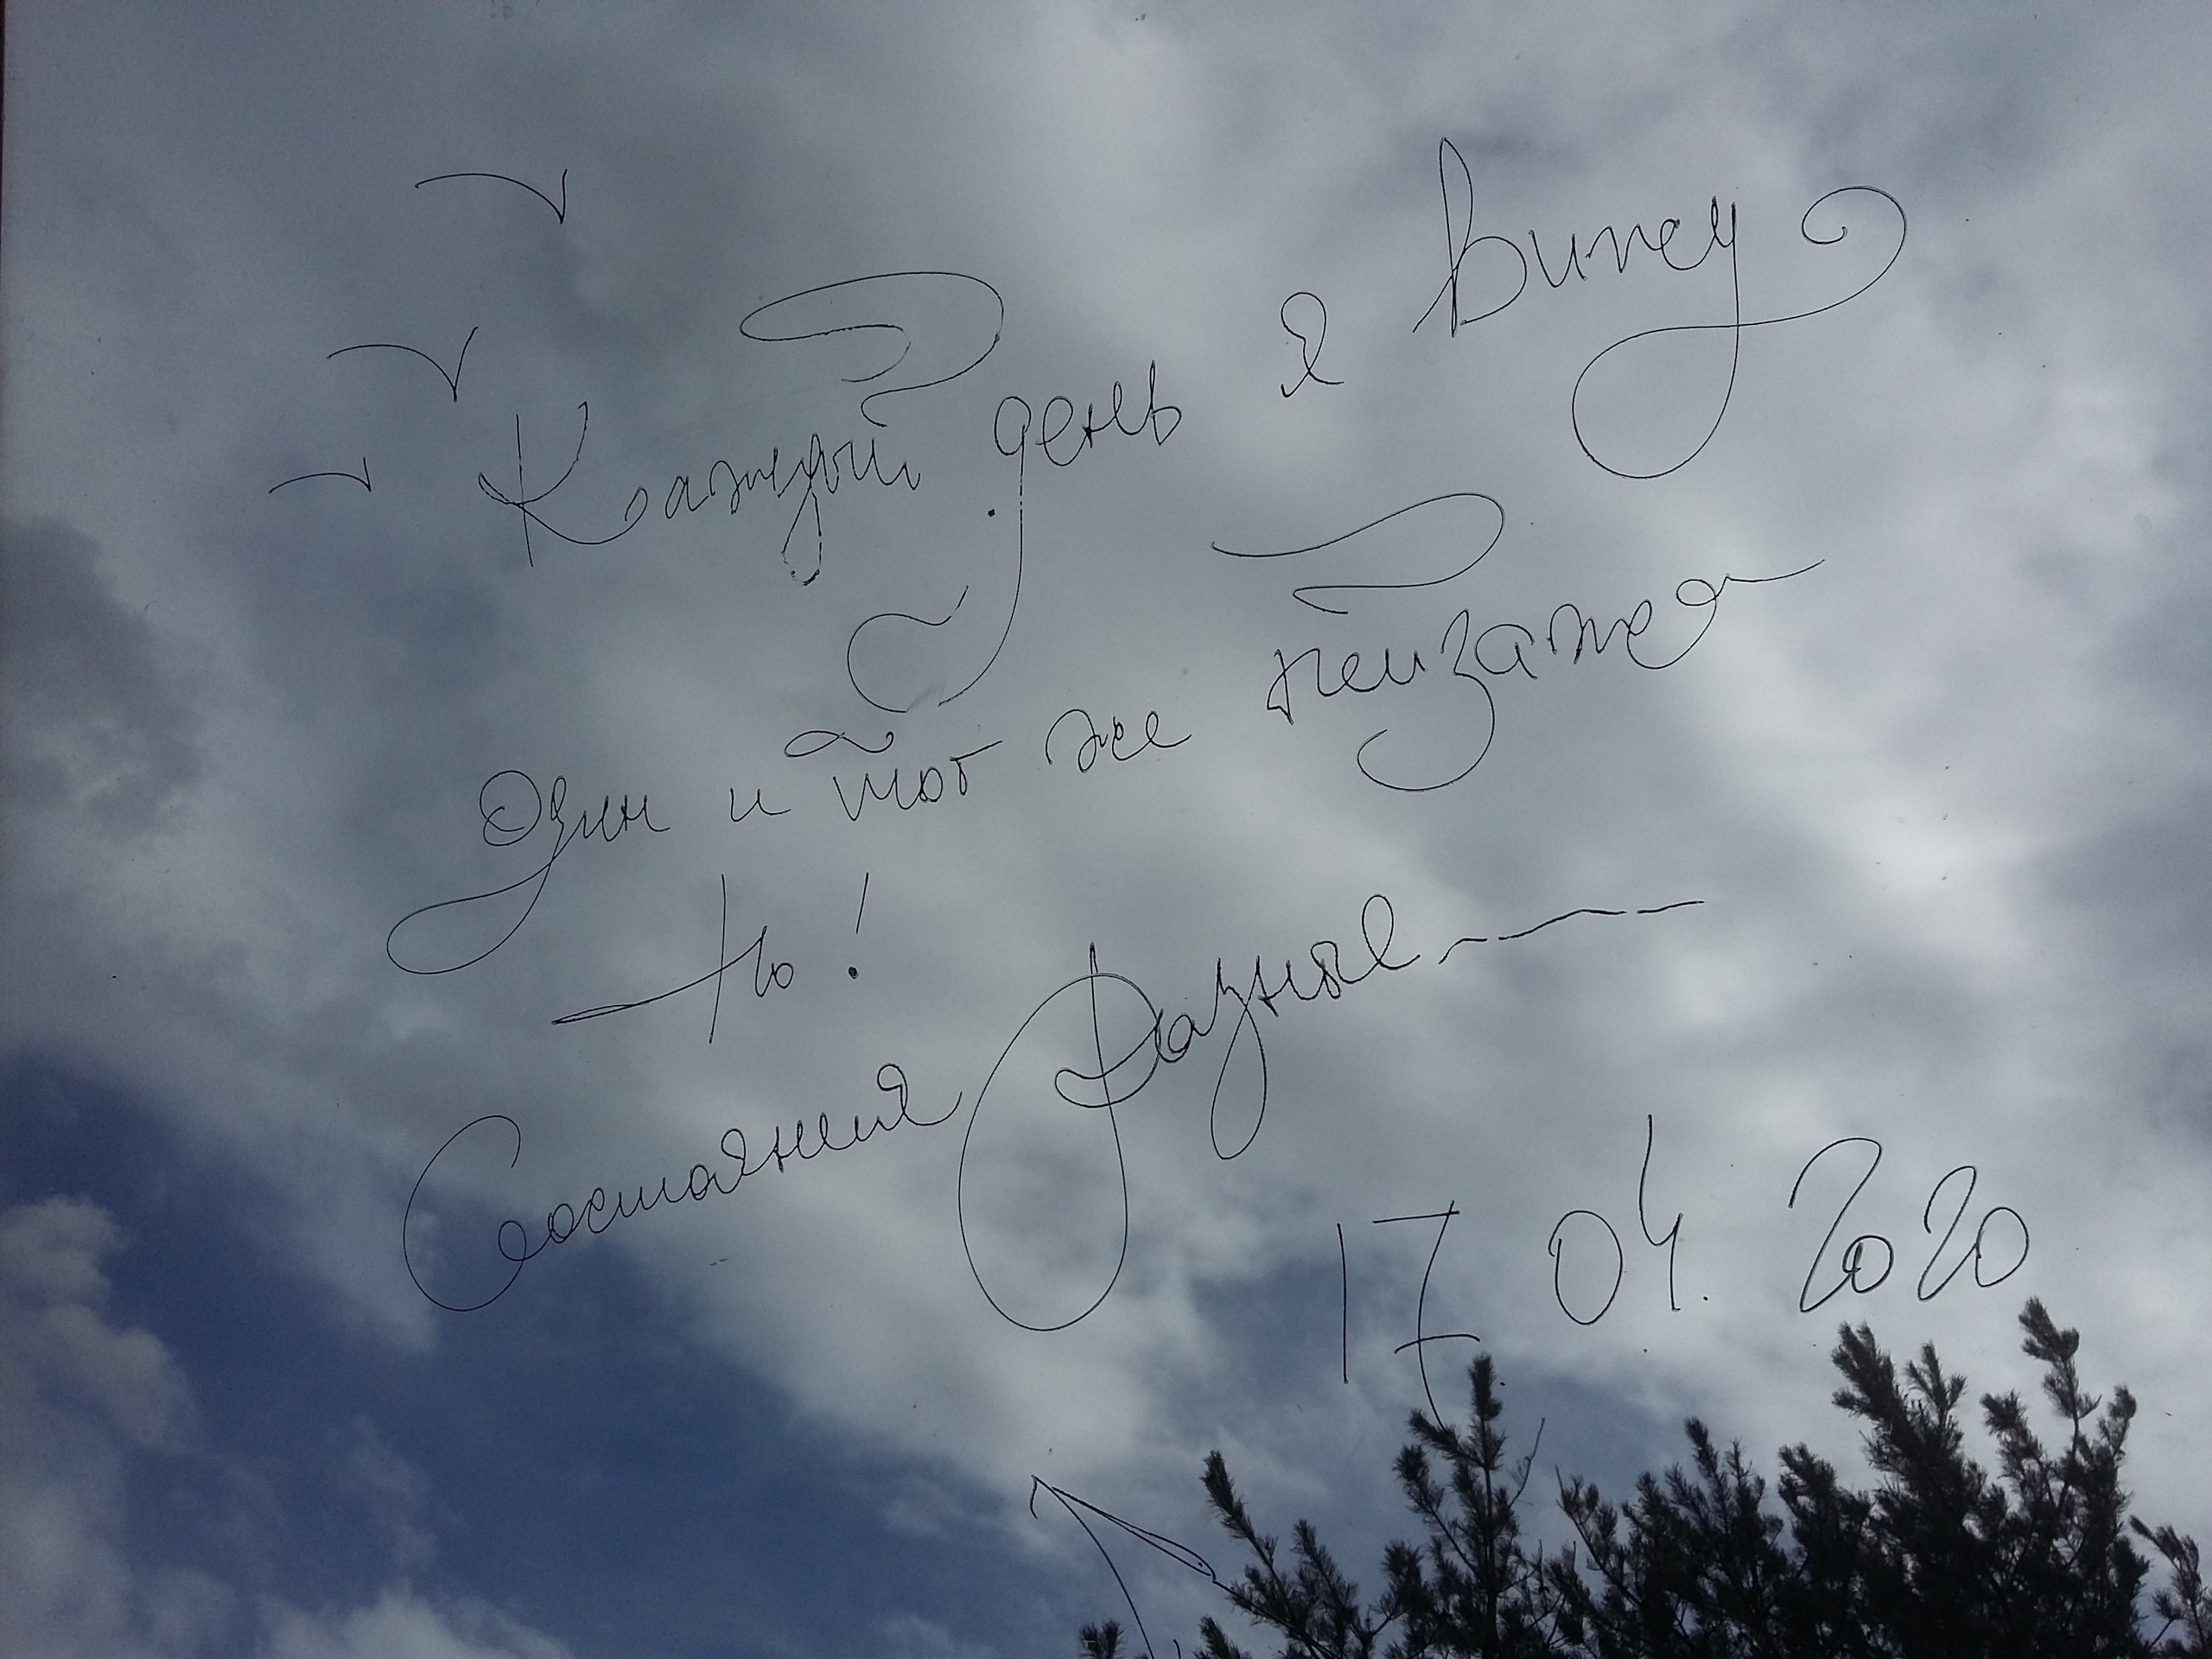 Каждый день я вижу
Один и тот же пейзаж
Но!
Состояния Разные
17 04. 2020